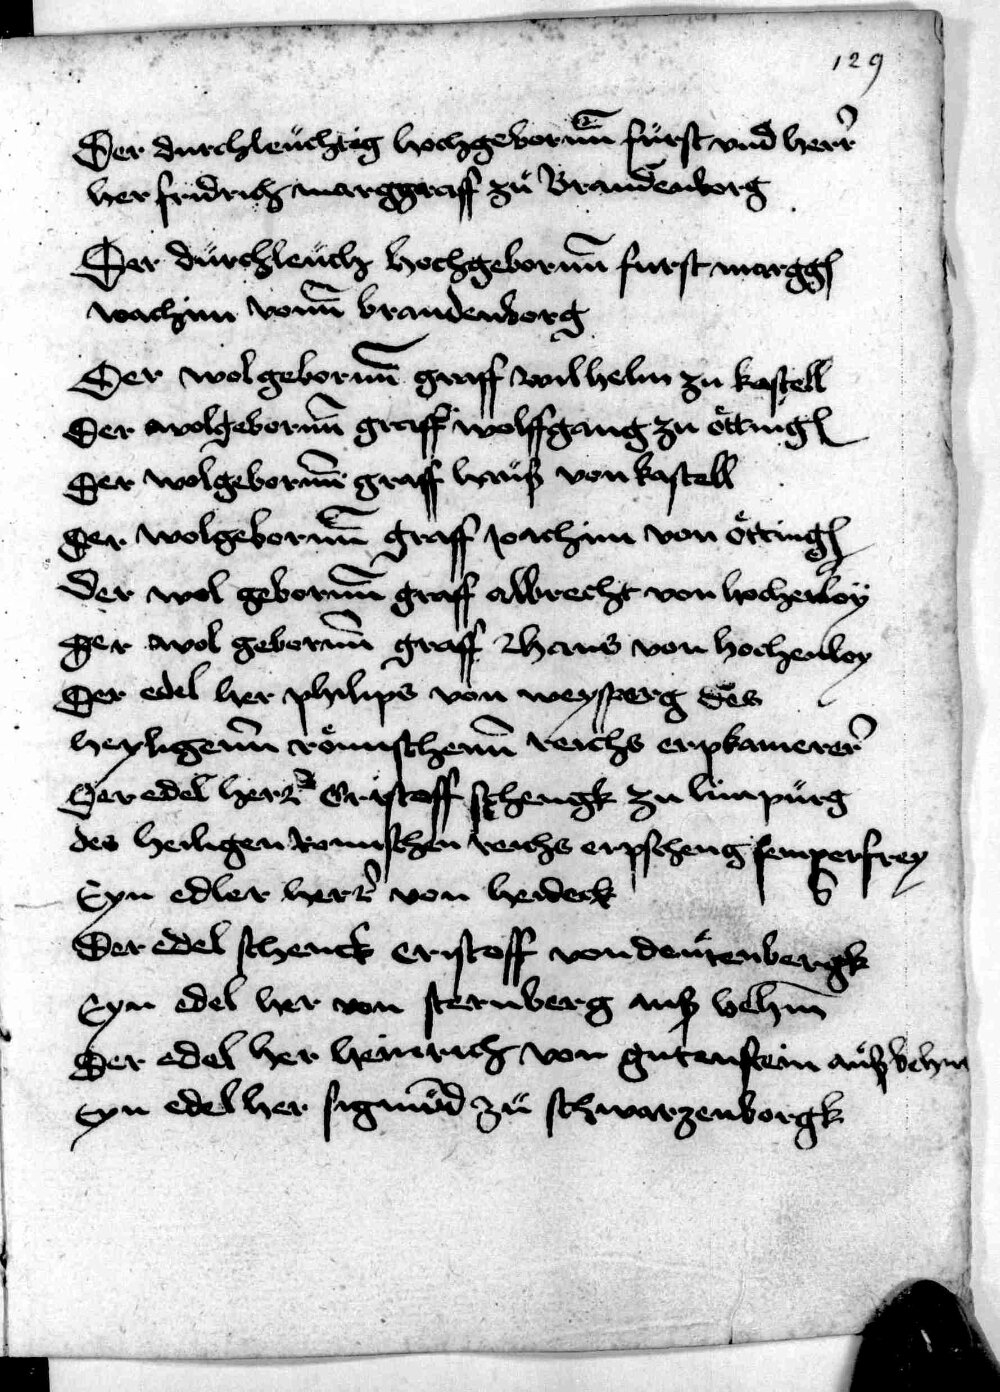 129
Der durchleüchtig hochgebornn fürst vnd herr
her fridrich marggraff zü Brandenborg
Der dürchleüch hochgebornn furst margg
ioachim vonn brandenborg
Der wolgebornn graff wilhelm zu kastell
Der wolgebornn graff wolffgang zu ötting
Der wolgebornn graff hanß von kastell
Der wolgebornn graff joachim von ötting
Der wol gebornn graff albrecht von hochenloy
Der wol gebornn graff Jhans von hochenloy
Der edel her philips von weysperg des
heyligenn römischenn reichs erpkamerer
Der edel herr Cristoff schengk zu limpürg
des heiligen Romischen reichs erpscheng semperfrey
Eyn edler herr von heideck
Der edel schenck cristoff von deütenbergk
Eyn edel her von sternberg auß behm
Der edel her heinrich von gutenstein auß behm
Eyn edel her sigmünd zü schwarzenborgk